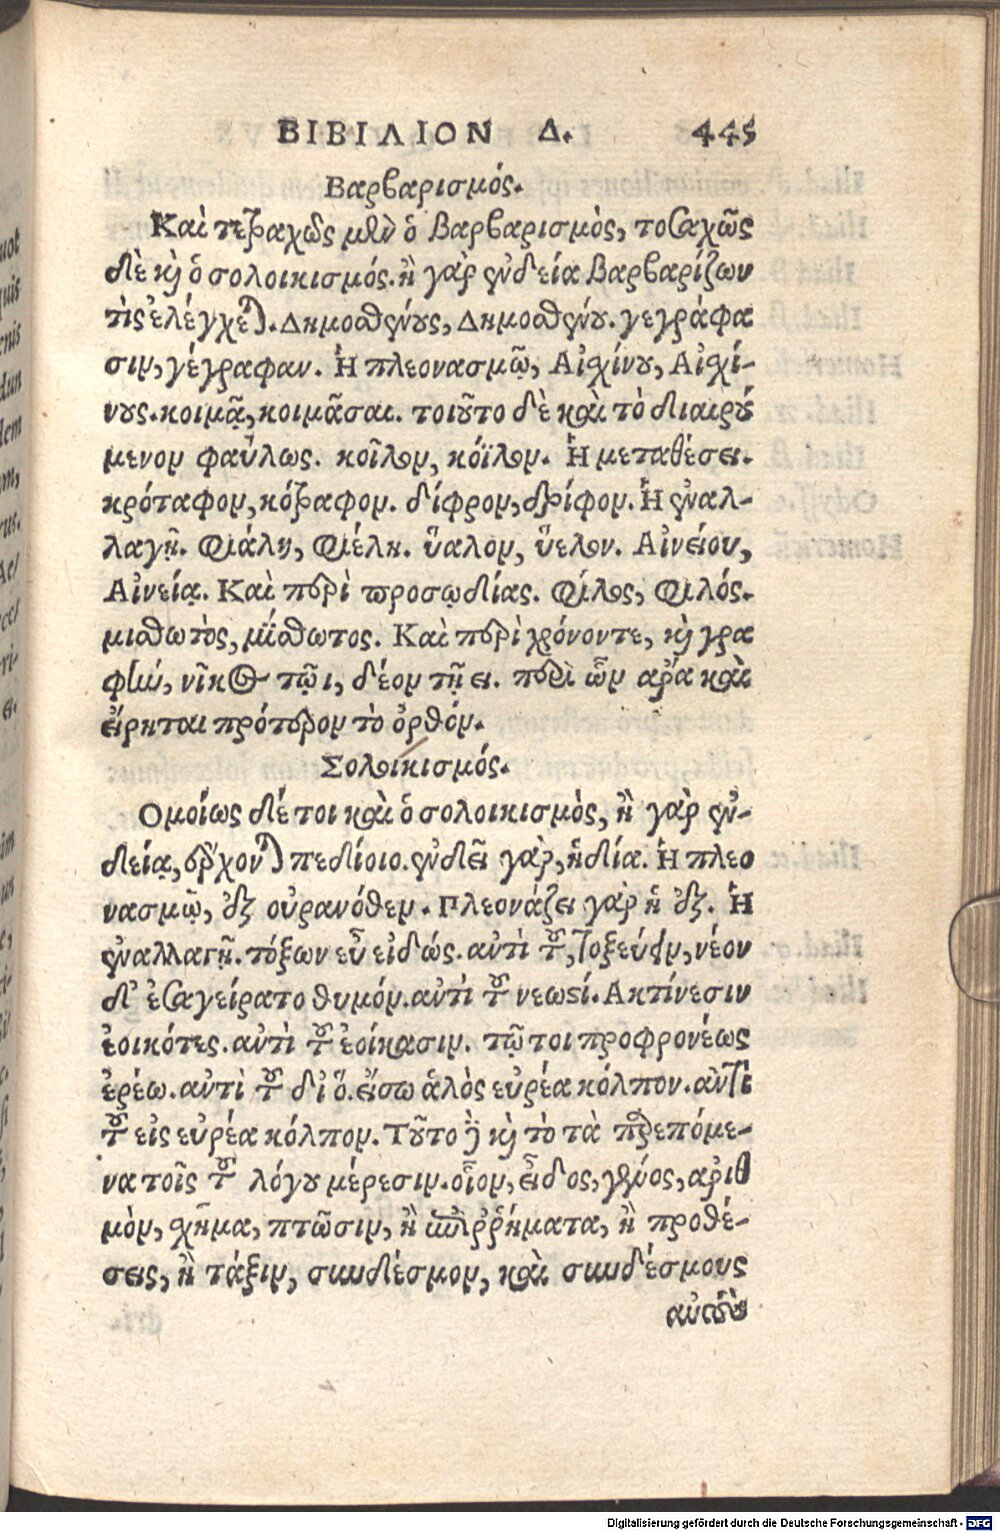 ΒΙΒΙΛΙΟΝ Δ. 445
Βαρβαρισμός.
Καὶ τετραχῶς μὲν ὁ Βαρβαρισμὸς, τοσαχῶς
δὲ κὶ ὁ σολοικισμός. ἢ γὰρ ἐνδεία Βαρβαρίζων
τὶς ἐλέγχεται. Δημοσθένους, Δημοσθένου. γεγράφα
σιν, γέγραφαν. Η πλεονασμῷ, Αἰσχίνου, Αἰσχί-
νους. κοιμᾷ, κοιμᾶσαι. τοιοῦτο δὲ καὶ τὸ διαιρού
μενον φαύλως. κοῖλον, κόϊλον. Η μεταθέσει.
κρόταφον, κότραφον. δίφρον, δρίφον. Η ἐναλ-
λαγῇ. Φιάλη, Φιέλη. ὕαλον, ὕελον. Αἰνείου,
Αἰνεία. Καὶ περὶ προσῳδίας. Φίλος, Φιλός.
μισθωτὸς, μίσθωτος. Καὶ περὶ χρόνον τε, κὶ γρα
φὴν, νῖκος τῷ ι, δέον τῇ ει. περὶ ὧν ἄρα καὶ
εἴρηται πρότερον τὸ ὀρθόν.
Σολοικισμός.
Ομοίως δέ τοι καὶ ὁ σολοικισμὸς, ἢ γὰρ ἐν-
δείᾳ, ἔρχονται πεδίοιο. ἐνδεῖ γὰρ, ἡ διά. Η πλεο
νασμῷ, ἐξ οὐρανόθεν. Πλεονάζει γὰρ ἡ ἐξ. Η
ἐναλλαγῇ. τόξων εὖ εἰδώς. αὐτὶ τοῦ, τοξεύειν, νέον
δ' ἐσαγείρατο θυμόν. αὐτὶ τοῦ νεωστί. Ακτίνεσιν
ἐοικότες. αὐτὶ τοῦ ἐοίκασιν. τῷ τοι προφρονέως
ἐρέω. αὐτὶ τοῦ δι' ὅ. εἴσω ἁλὸς εὐρέα κόλπον. αὐτὶ
τοῦ εἰς εὐρέα κόλπον. Τοῦτο ἢ κὶ τὸ τὰ παρεπόμε-
να τοῖς τοῦ λόγου μέρεσιν. οἷον, εἶδος, γένος, ἀριθ
μὸν, σχῆμα, πτῶσιν, ἢ ἐπιῤῥήματα, ἢ προθέ-
σεις, ἢ τάξιν, συνδέσμον, καὶ συνδέσμους
αὐτοὺς
Digitalisierung gefördert durch die Deutsche Forschungsgemeinschaft - DFG